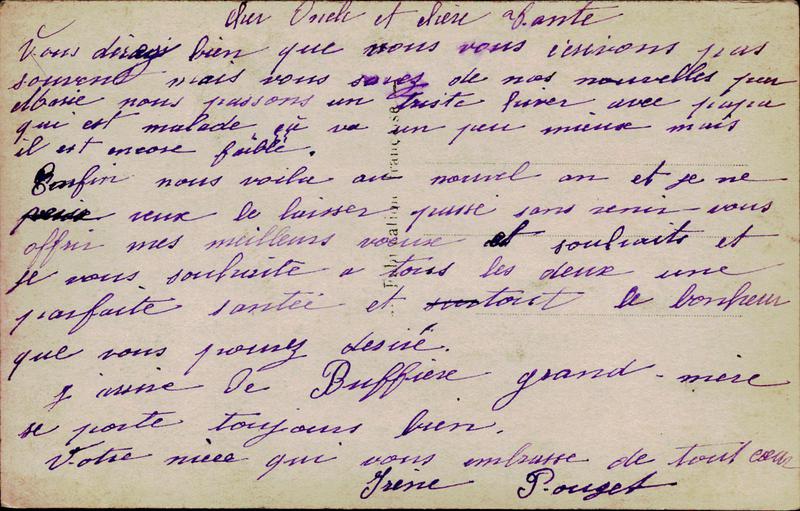 cher Oncle et chère Tante
Vous direz bien que nous vous écrivons pas
souvent mais vous savez de nos nouvelles par
Marie nous passons un triste hiver avec papa
qui est malade ça va un peu mieux mais
il est encore faible.
Enfin nous voila au nouvel an et je ne
veux le laisser passé sans venir vous
offrir mes meilleurs voeux et souhaits et
je vous souhaite a tous les deux une
parfaite santée et surtout le bonheur
que vous pouvez désiré.
J'arrive de Buffière grand-mère
se porte toujours bien.
Votre nièce qui vous embrasse de tout cœur
Irène Pouget